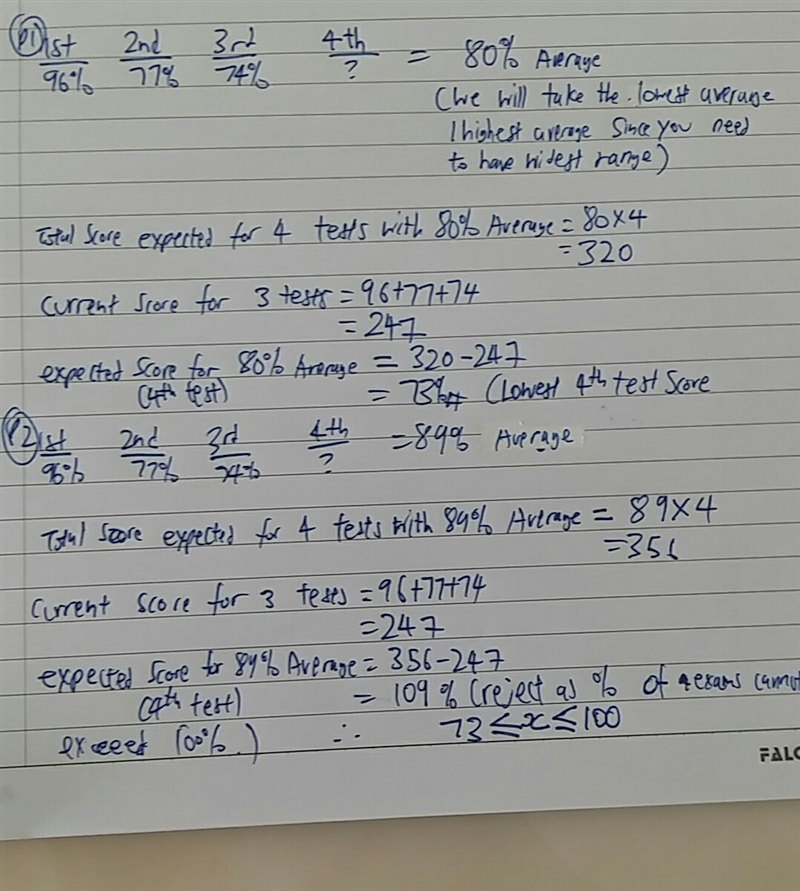 P1) 1st/96% 2nd/77% 3rd/74% 4th/? = 80% Average
(We will take the lowest average
/highest average since you need
to have widest range)
Total Score expected for 4 tests with 80% Average = 80×4
= 320
Current Score for 3 tests = 96+77+74
= 247
expected Score for 80% Average = 320-247
(4th test) = 73% (Lowest 4th test Score
P2) 1st/96% 2nd/77% 3rd/74% 4th/? = 89% Average
Total Score expected for 4 tests with 89% Average = 89×4
= 356
Current Score for 3 tests = 96+77+74
= 247
expected Score for 89% Average = 356-247
(4th test) = 109% (reject as % of exams cannot
exceed 100%.) ∴ 73 ≤ x ≤ 100
FALC